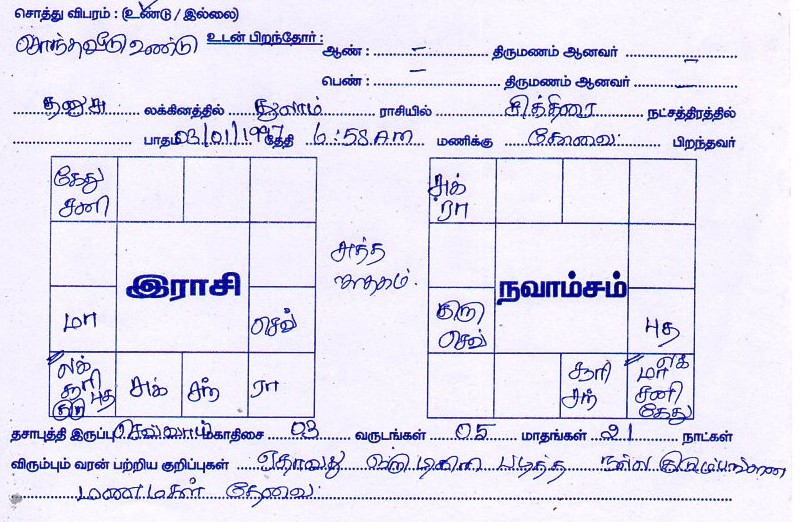 சொத்து விபரம் : (உண்டு / இல்லை)
சொந்தவீடு உண்டு உடன் பிறந்தோர் : ஆண் : – திருமணம் ஆனவர் –
பெண் : – திருமணம் ஆனவர் –
தனுசு லக்கினத்தில் துலாம் ராசியில் சித்திரை நட்சத்திரத்தில்
பாதம் 03/01/1997 தேதி 6:58 AM மணிக்கு கோவை பிறந்தவர்
கேது சனி
இராசி
மா
செவ்
லக் சூரி புத குரு
அக்
சந்
ரா
அந்த ஜாதகம்.
அக் ரா
நவாம்சம்
குரு செவ்
புத
சூரி சந்
லக் மா சனி கேது
தசாபுத்தி இருப்பு செவ்வாய் மகாதிசை 03 வருடங்கள் 05 மாதங்கள் 21 நாட்கள்
விரும்பும் வரன் பற்றிய குறிப்புகள் ஏதாவது ஒரு டிகிரி படித்த நல்ல குடும்பபாங்கான
மணமகள் தேவை